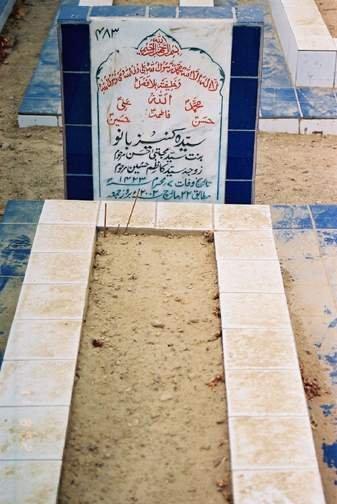 ۴۸۳
بسم اللہ الرحمن الرحیم
لا الہ الا اللہ محمد رسول اللہ علی ولی اللہ وصی رسول اللہ
و خلیفتہ بلا فصل
محمدؐ اللہ علیؑ
حسنؑ فاطمہؑ حسینؑ
سیدہ کنیز بانو
بنت سید مجتبیٰ حسن مرحوم
زوجہ سید کاظم حسین مرحوم
تاریخ وفات ۷ محرم ۱۴۲۳
مطابق ۲۲ مارچ ۲۰۰۲ء بروز جمعہ